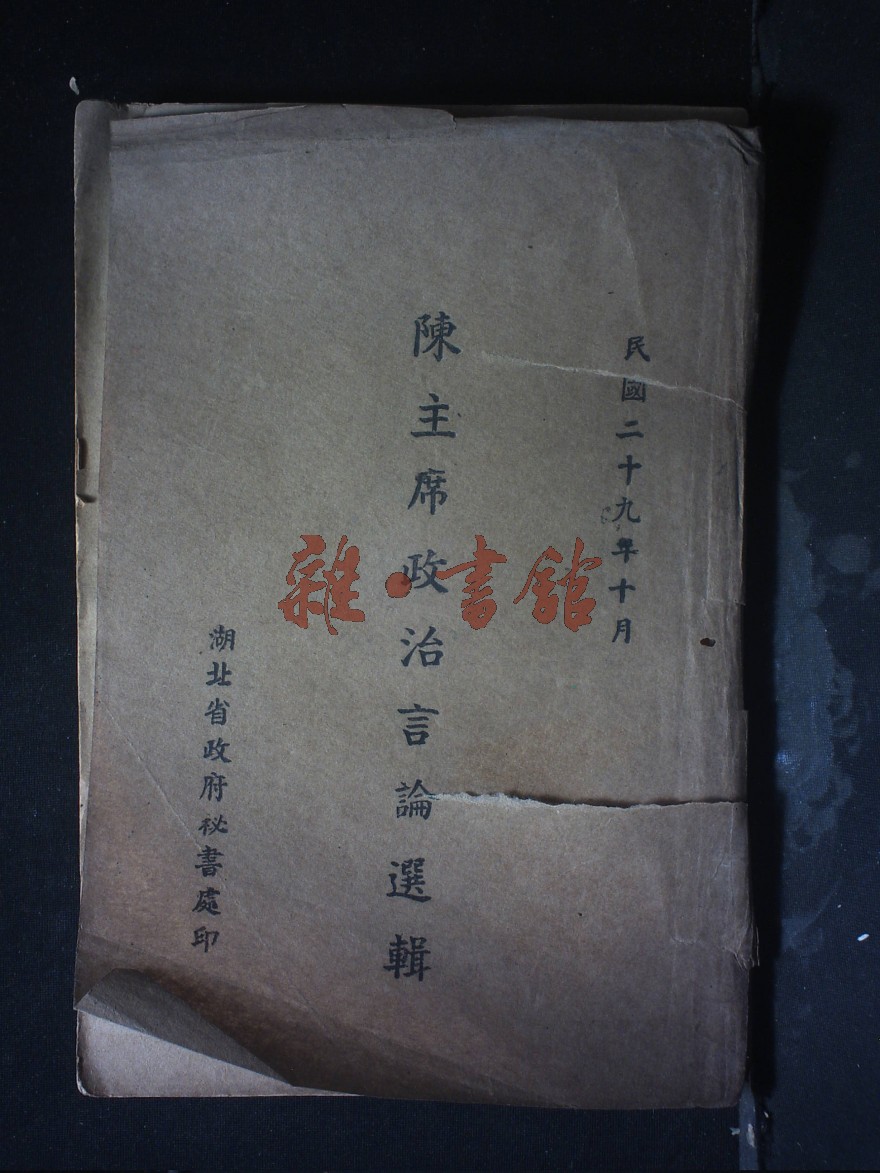 民國二十九年十月
陳主席政治言論選輯
湖北省政府秘書處印
雜·書館